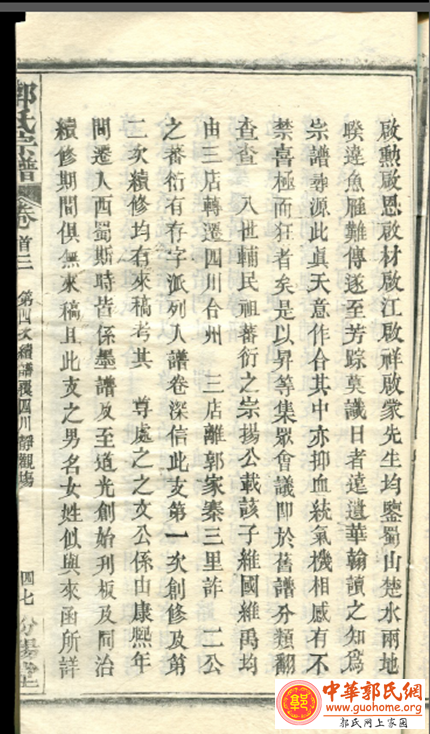 啟勲啟恩啟材啟江啟祥啟蒙先生均鑒蜀山楚水兩地
暌違魚雁難傳遂至芳踪莫識日者遠遺華翰讀之知爲
宗譜尋源此真天意作合其中亦抑血統氣機相感有不
禁喜極而狂者矣是以昇等集眾會議即於舊譜分類翻
查查 八世輔民祖蕃衍之崇揚公載該子維國維禹均
由三店轉遷四川台州 三店離郭家寨三里許 二公
之蕃衍有存字派列入譜卷深信此支第一次創修及第
二次續修均有來稿考其 尊處之之文公係由康熙年
間遷入西蜀斯時皆係墨譜及至道光創始刋板及同治
續修期間俱無來稿且此支之男名女姓似與來函所詳
郭氏宗譜
卷首二
第四次續譜覆四川靜觀場
四七
汾陽堂
中華郭氏網
www.guohome.org
郭氏网上家园